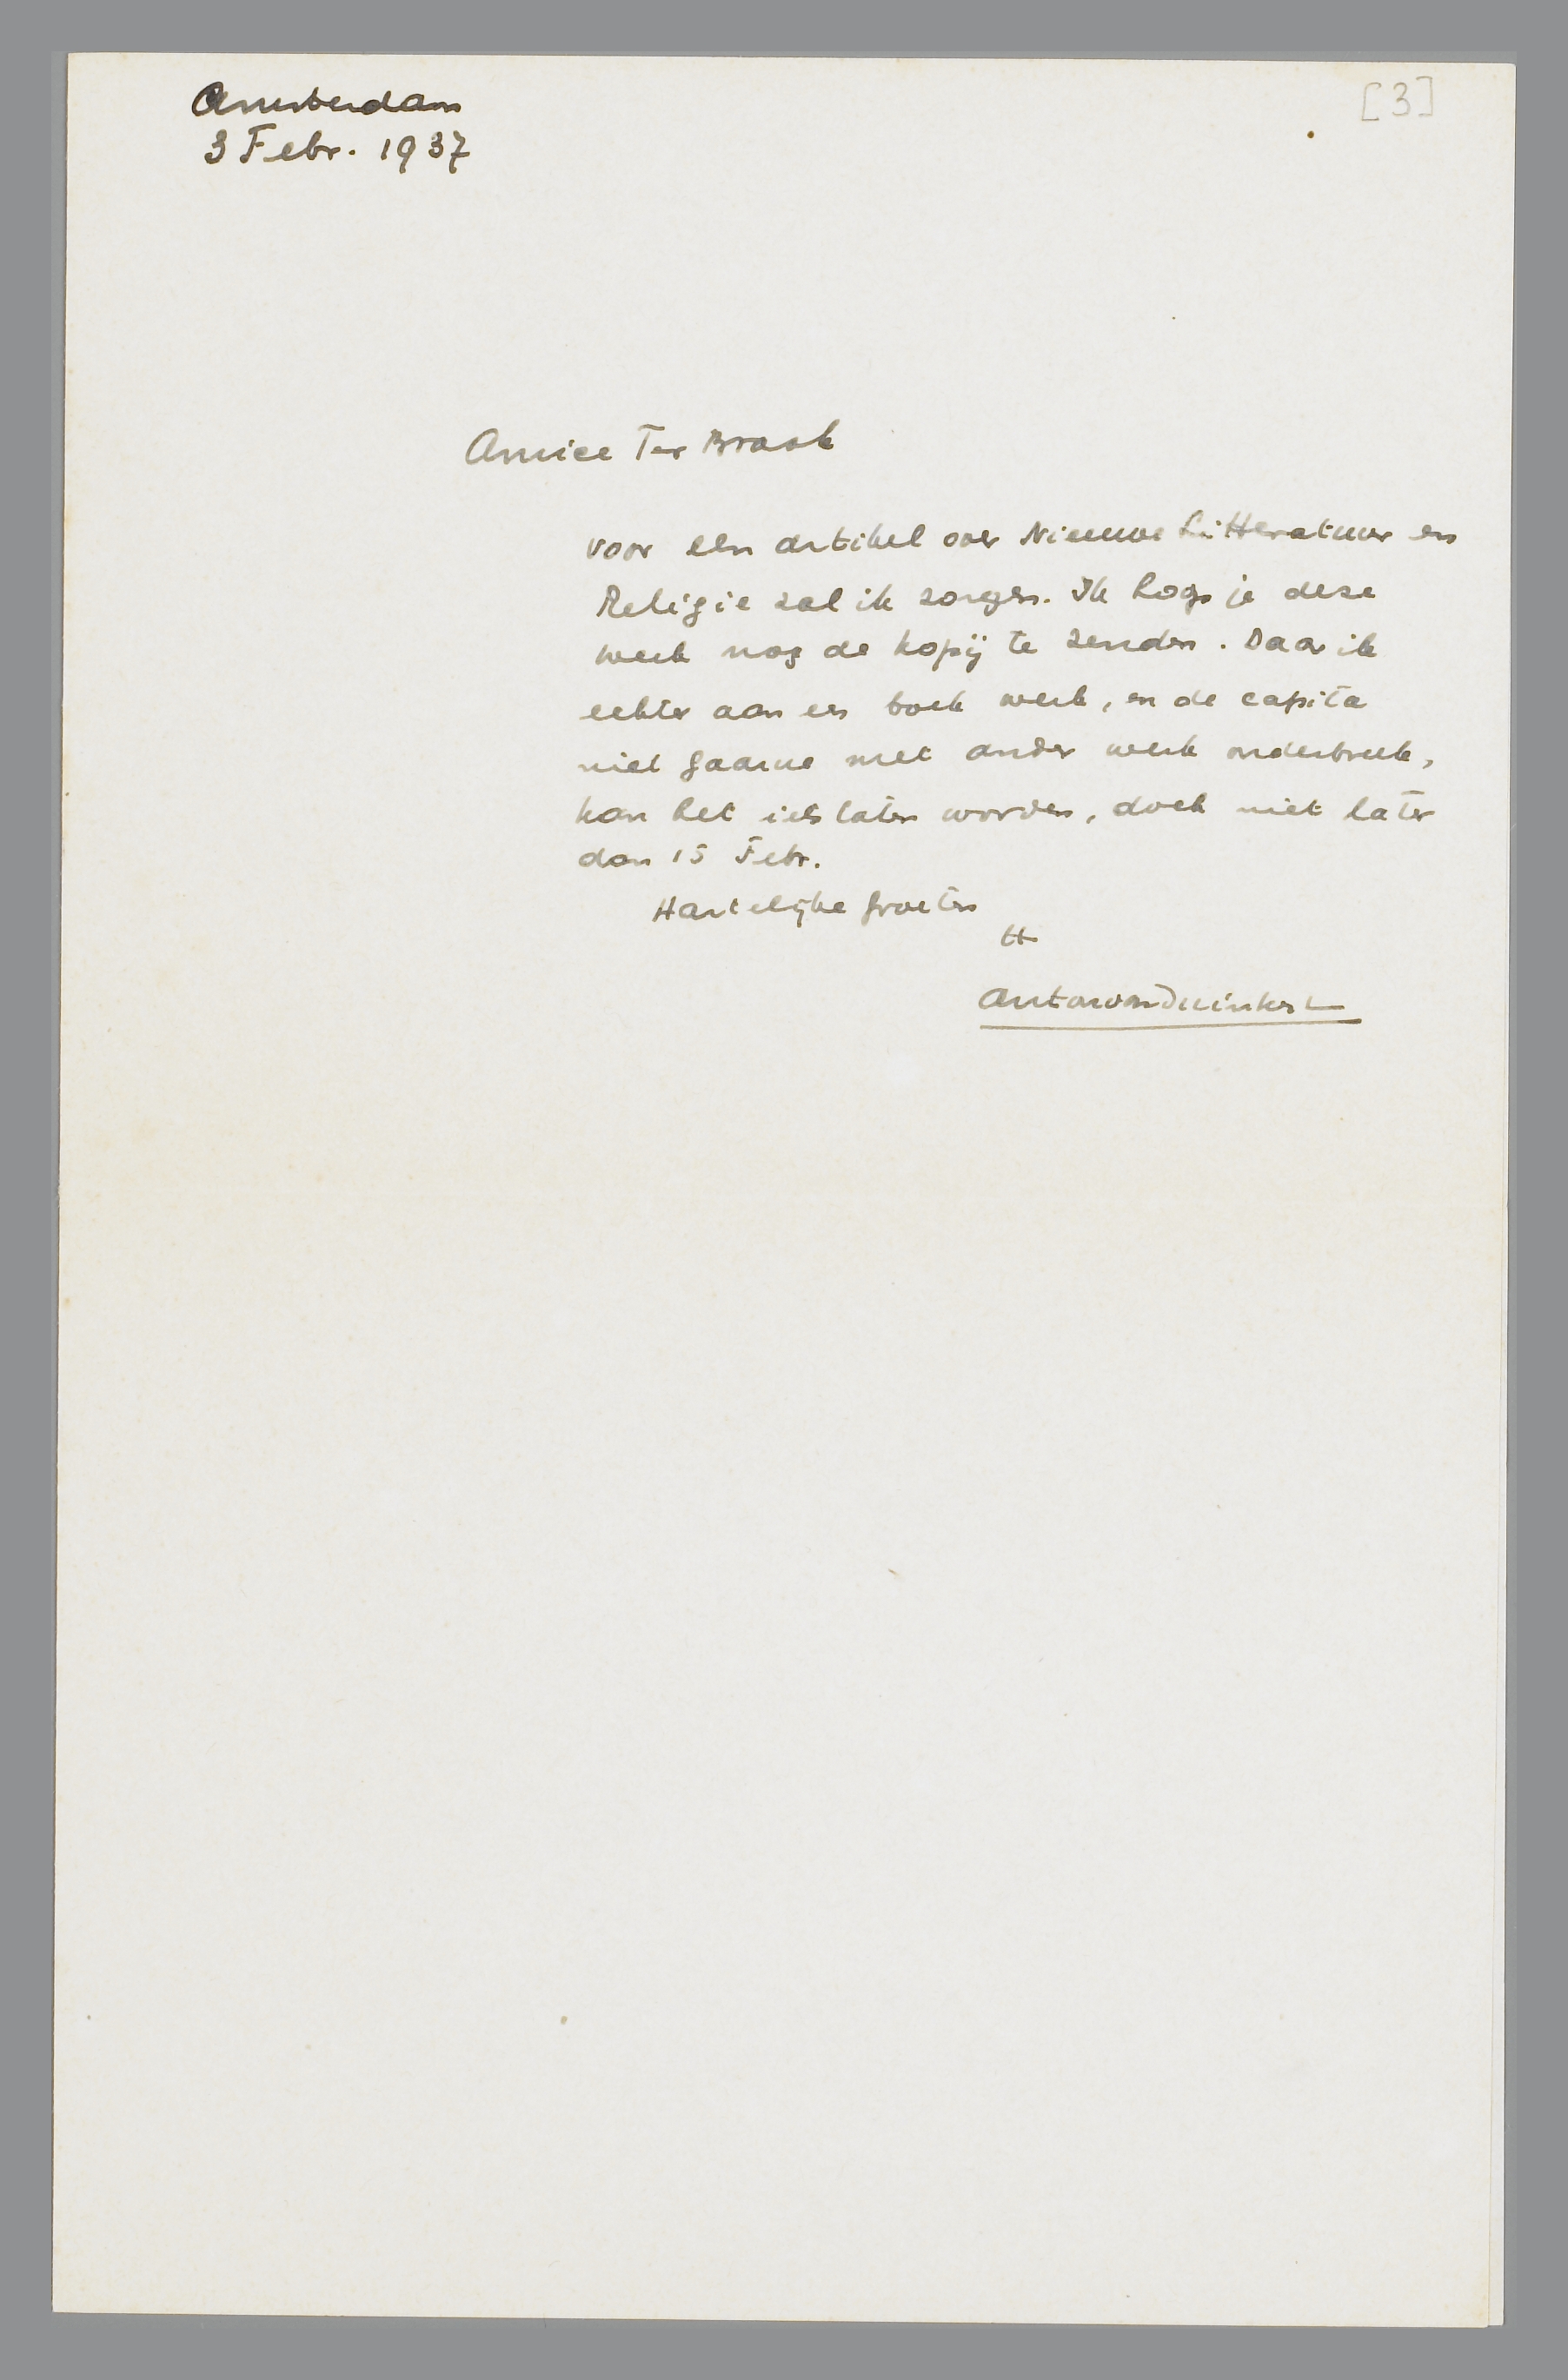 Amsterdam
3 Febr. 1937
[3]
Amice Ter Braak
voor een artikel over Nieuwe Litteratuur en
Religie zal ik zorgen. Ik hoop je deze
week nog de kopij te zenden. Daar ik
echter aan een boek werk, en de capita
niet gaarne met ander werk onderbreek,
kan het iets later worden, doch niet later
dan 15 Febr.
Hartelijke groeten
tt
Anton van Duinkerken